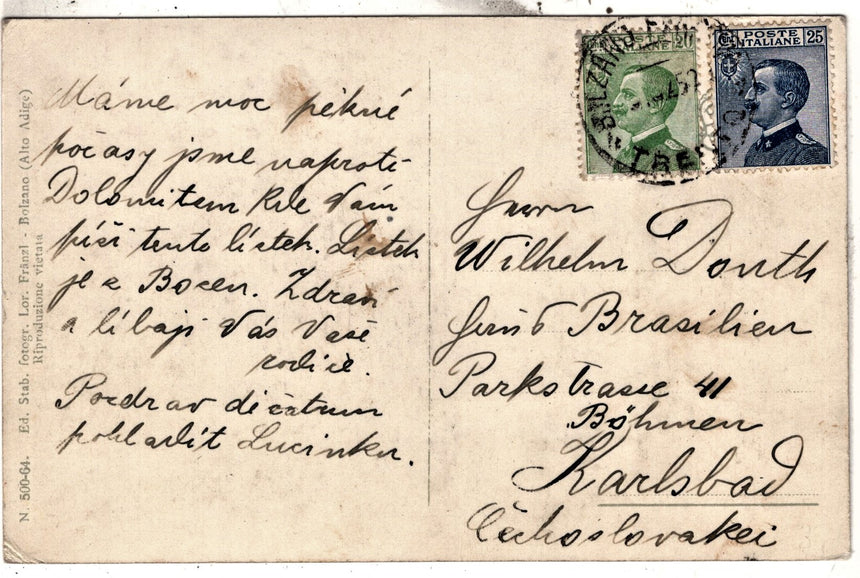 Máme moc pěkné
počasy jsme naproti
Dolomitem kde Vám
píši tento lístek. Lístek
je z Bocen. Zdraví
a líbají Vás Vaše
rodiče.
Pozdrav dičátkum
pohladit Lucinku.
N. 500-64. Ed. Stab. fotogr. Lor. Fränzl - Bolzano (Alto Adige)
Riproduzione vietata
POSTE
ITALIANE 20
POSTE
ITALIANE 25
BOLZANO
TRENTO
Herrn
Wilhelm Donth
Brasilien
Parkstrasse 41
Böhmen
Karlsbad
Čechoslovakei